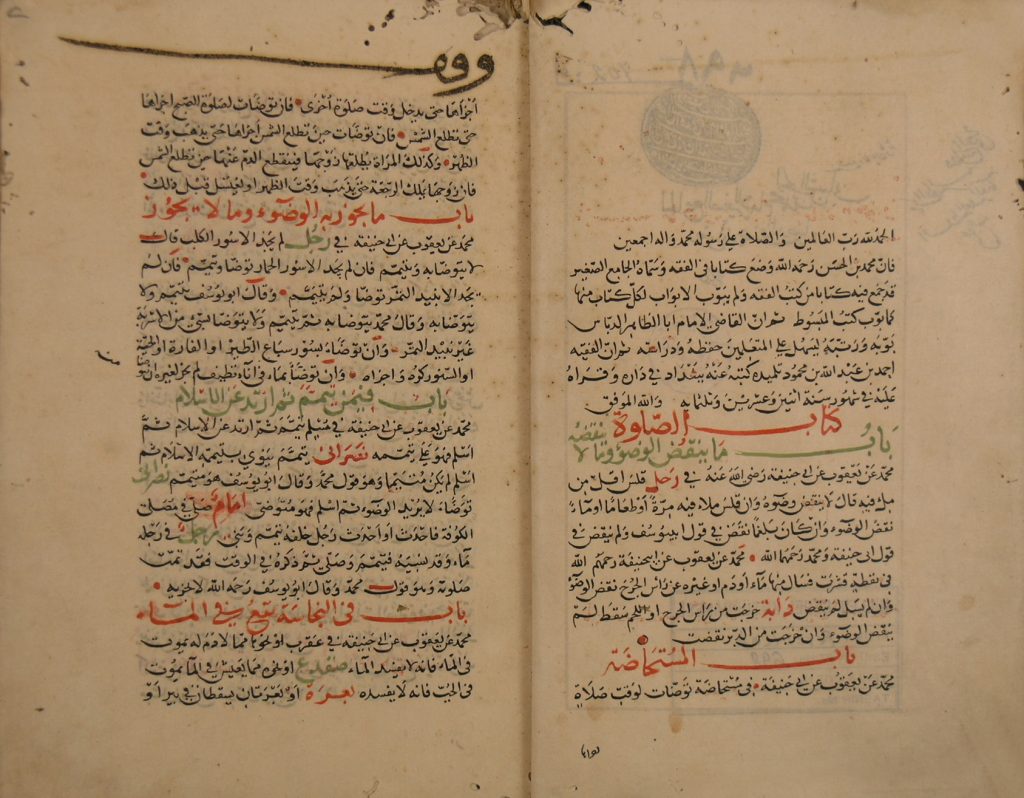 الحمد لله رب العالمين والصلاة على رسوله محمد وآله اجمعين
فان محمد بن الحسن رحمه الله وضع كتابا في الفقه وسماه الجامع الصغير
قد جمع فيه كتابا من كتب الفقه ولم يبوب الابواب لكل كتاب منها
كما بوب كتب المبسوط ثم ان القاضي الامام ابا الطاهر الدباس
بوبه ورتبه ليسهل على المتعلمين حفظه ودراسته ثم ان الفقيه
احمد بن عبد الله بن محمود تلميذه كتبه عنه ببغداد في داره وقراه
عليه في شهور سنة اثنين وعشرين وثلثمائة والله الموفق
كتاب الصلوة
باب ما ينقض الوضوء وما لا ينقضه
محمد عن يعقوب عن ابي حنيفة رضي الله عنه في رجل قلس اقل من
ملء فيه قال لا ينقض وضوه وان قلس ملاء فيه مرة او طعاما او ماء
نقض الوضوء وان كان بلغما نقض في قول ابي يوسف ولم ينقض في
قول ابي حنيفة ومحمد رحمهما الله محمد عن يعقوب عن ابي حنيفة رحمهم الله
في نفطة قشرت فسال منها ماء او دم او غيره عن راس الجرح نقض الوضوء
وان لم يسل لم ينقض دابة خرجت من راس الجرح او اللحم سقط لم
ينقض الوضوء وان خرجت من الدبر نقضت
باب المستحاضة
محمد عن يعقوب عن ابي حنيفة في مستحاضة توضات لوقت صلاة
وقف
اجزاها حتى يدخل وقت صلوة اخرى فان توضات لصلوة الصبح اجزاها
حتى تطلع الشمس فان توضات حين تطلع الشمس اجزاها حتى يذهب وقت
الظهر وكذلك المراة يطلقها زوجها فينقطع الدم عنها حين تطلع الشمس
فان زوجها يملك الرجعة حتى يذهب وقت الظهر او تغتسل قبل ذلك
باب ما يجوز به الوضوء وما لا يجوز
محمد عن يعقوب عن ابي حنيفة في رجل لم يجد الا سور الكلب قال
لا يتوضا به ويتيمم فان لم يجد الا سور الحمار توضا وتيمم فان لم
يجد الا نبيذ التمر توضا ولم يتيمم وقال ابو يوسف يتيمم ولا
يتوضا به وقال محمد يتوضا به ثم يتيمم ولا يتوضا بشيء من الاشربة
غير نبيذ التمر وان توضاء بسور سباع الطير او الفارة او الحية
او السنور كره واجزاه وان توضأ بماء في اناء نظيف لم يجز لغيره ان
باب فيمن تيمم ثم ارتد عن الاسلام
محمد عن يعقوب عن ابي حنيفة في مسلم تيمم ثم ارتد عن الاسلام ثم
اسلم فهو على تيممه نصراني تيمم ينوي بتيممه الاسلام ثم
اسلم لم يكن متيمما وهو قول محمد وقال ابو يوسف هو متيمم نصراني
توضاء لا يريد الوضوء ثم اسلم فهو متوضئ امام صلى في مصلى
الكوفة فاحدث او احدث رجل خلفه تيمم وبنى رجل في رحله
ماء وقد نسيه فتيمم وصلى ثم ذكره في الوقت فقد تمت
صلوته وهو قول محمد وقال ابو يوسف رحمه الله لا يجزيه
باب في النجاسة تقع في الماء
محمد عن يعقوب عن ابي حنيفة في عقرب او نحوها مما لا دم له يموت
في الماء فانه لا يفسد الماء ضفدع او نحوه مما يعيش في الماء يموت
في الحب فانه لا يفسده بعرة او بعرتان يسقطان في بير او